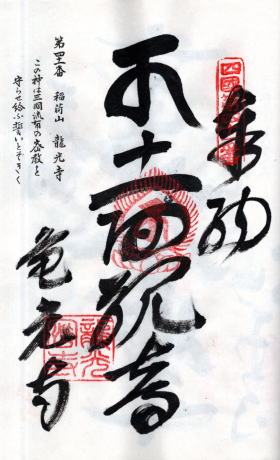 奉納
本十一面観音
竜光寺
第四十一番　稲荷山　龍光寺
この神は三国流布の密教を
守らせ給ふ誓いとぞきく